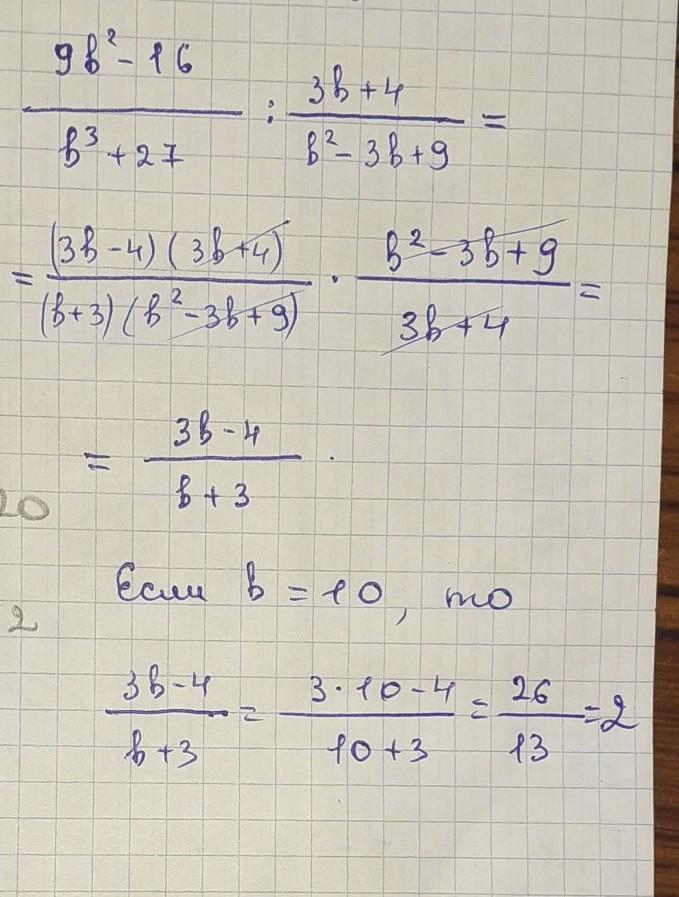 (9b² - 16)/(b³ + 27) : (3b + 4)/(b² - 3b + 9) =
= (3b - 4)(3b + 4)/(b + 3)(b² - 3b + 9) · (b² - 3b + 9)/(3b + 4) =
= (3b - 4)/(b + 3) .
20
Если b = 10, то
2
(3b - 4)/(b + 3) = (3 · 10 - 4)/(10 + 3) = 26/13 = 2